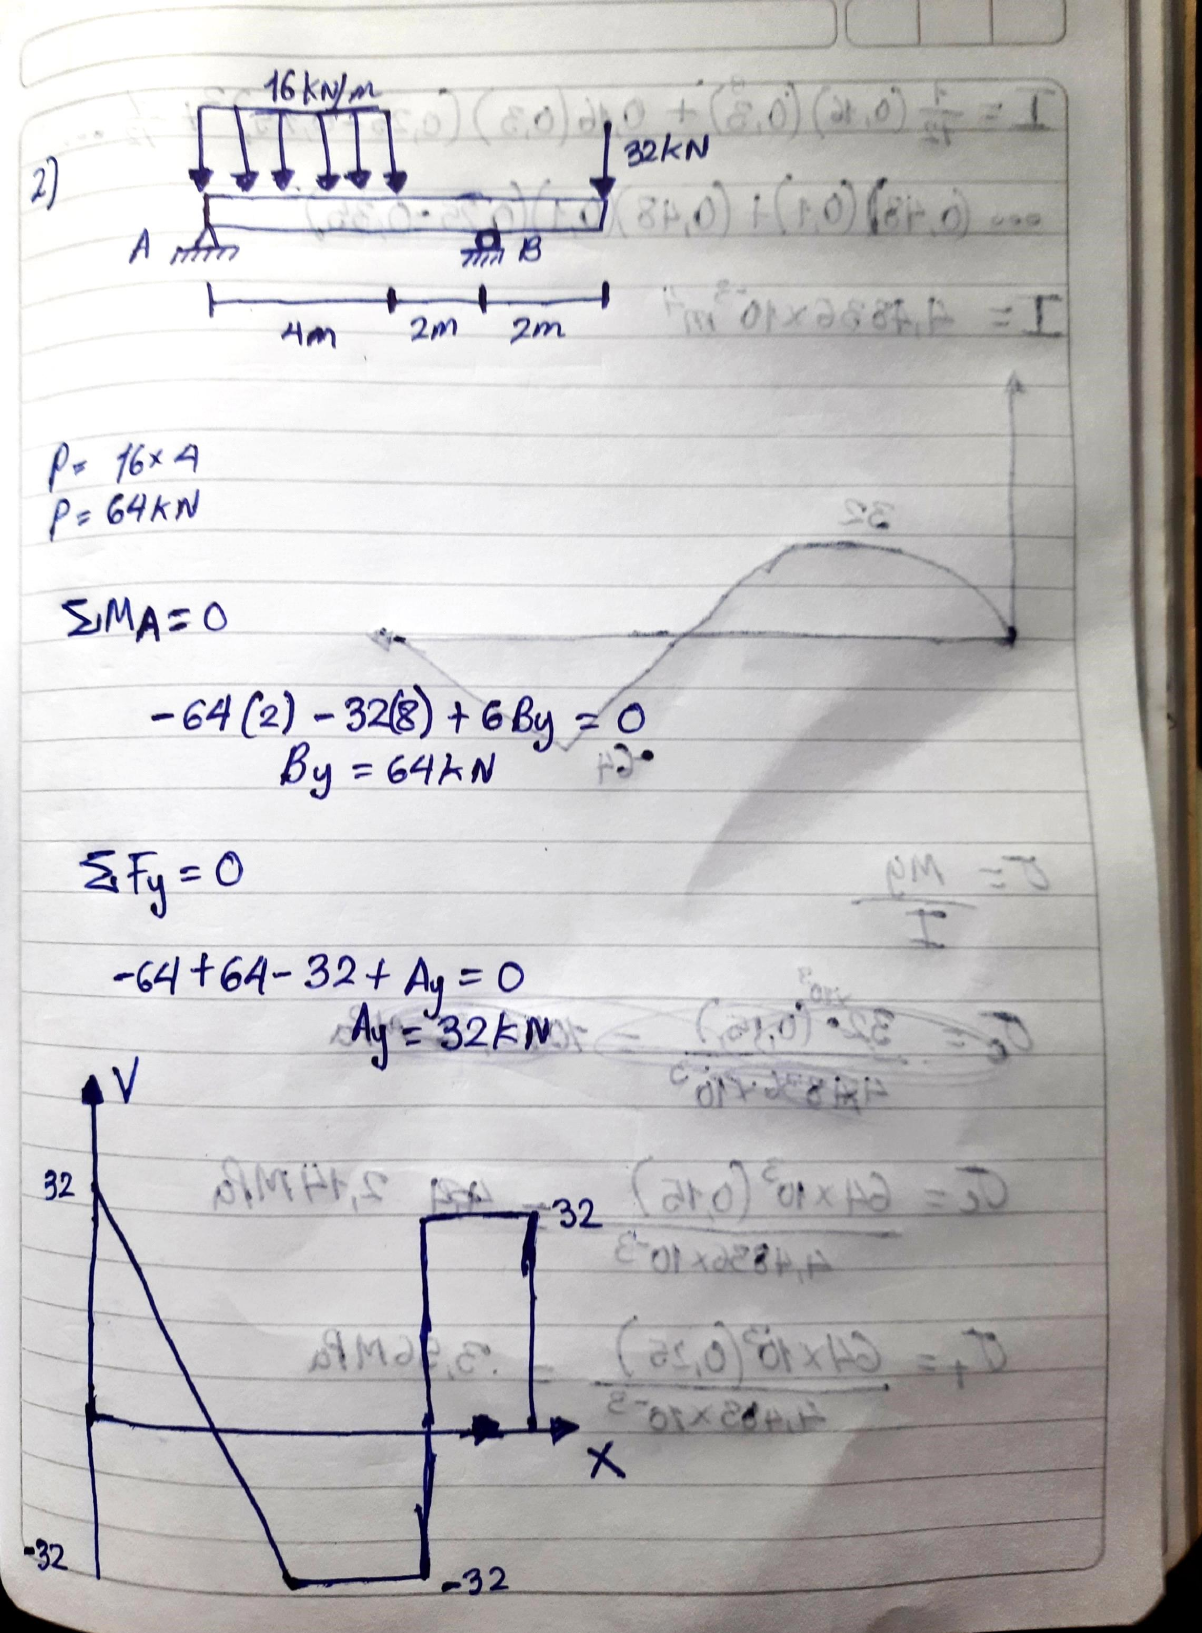 16 kN/m
32kN
2)
A
B
4m 2m 2m
P= 16×4
P= 64kN
ΣMA=0
-64(2) - 32(8) + 6By = 0
By = 64kN
ΣFy = 0
-64+64-32+Ay = 0
Ay = 32kN
V
32
32
X
-32
-32